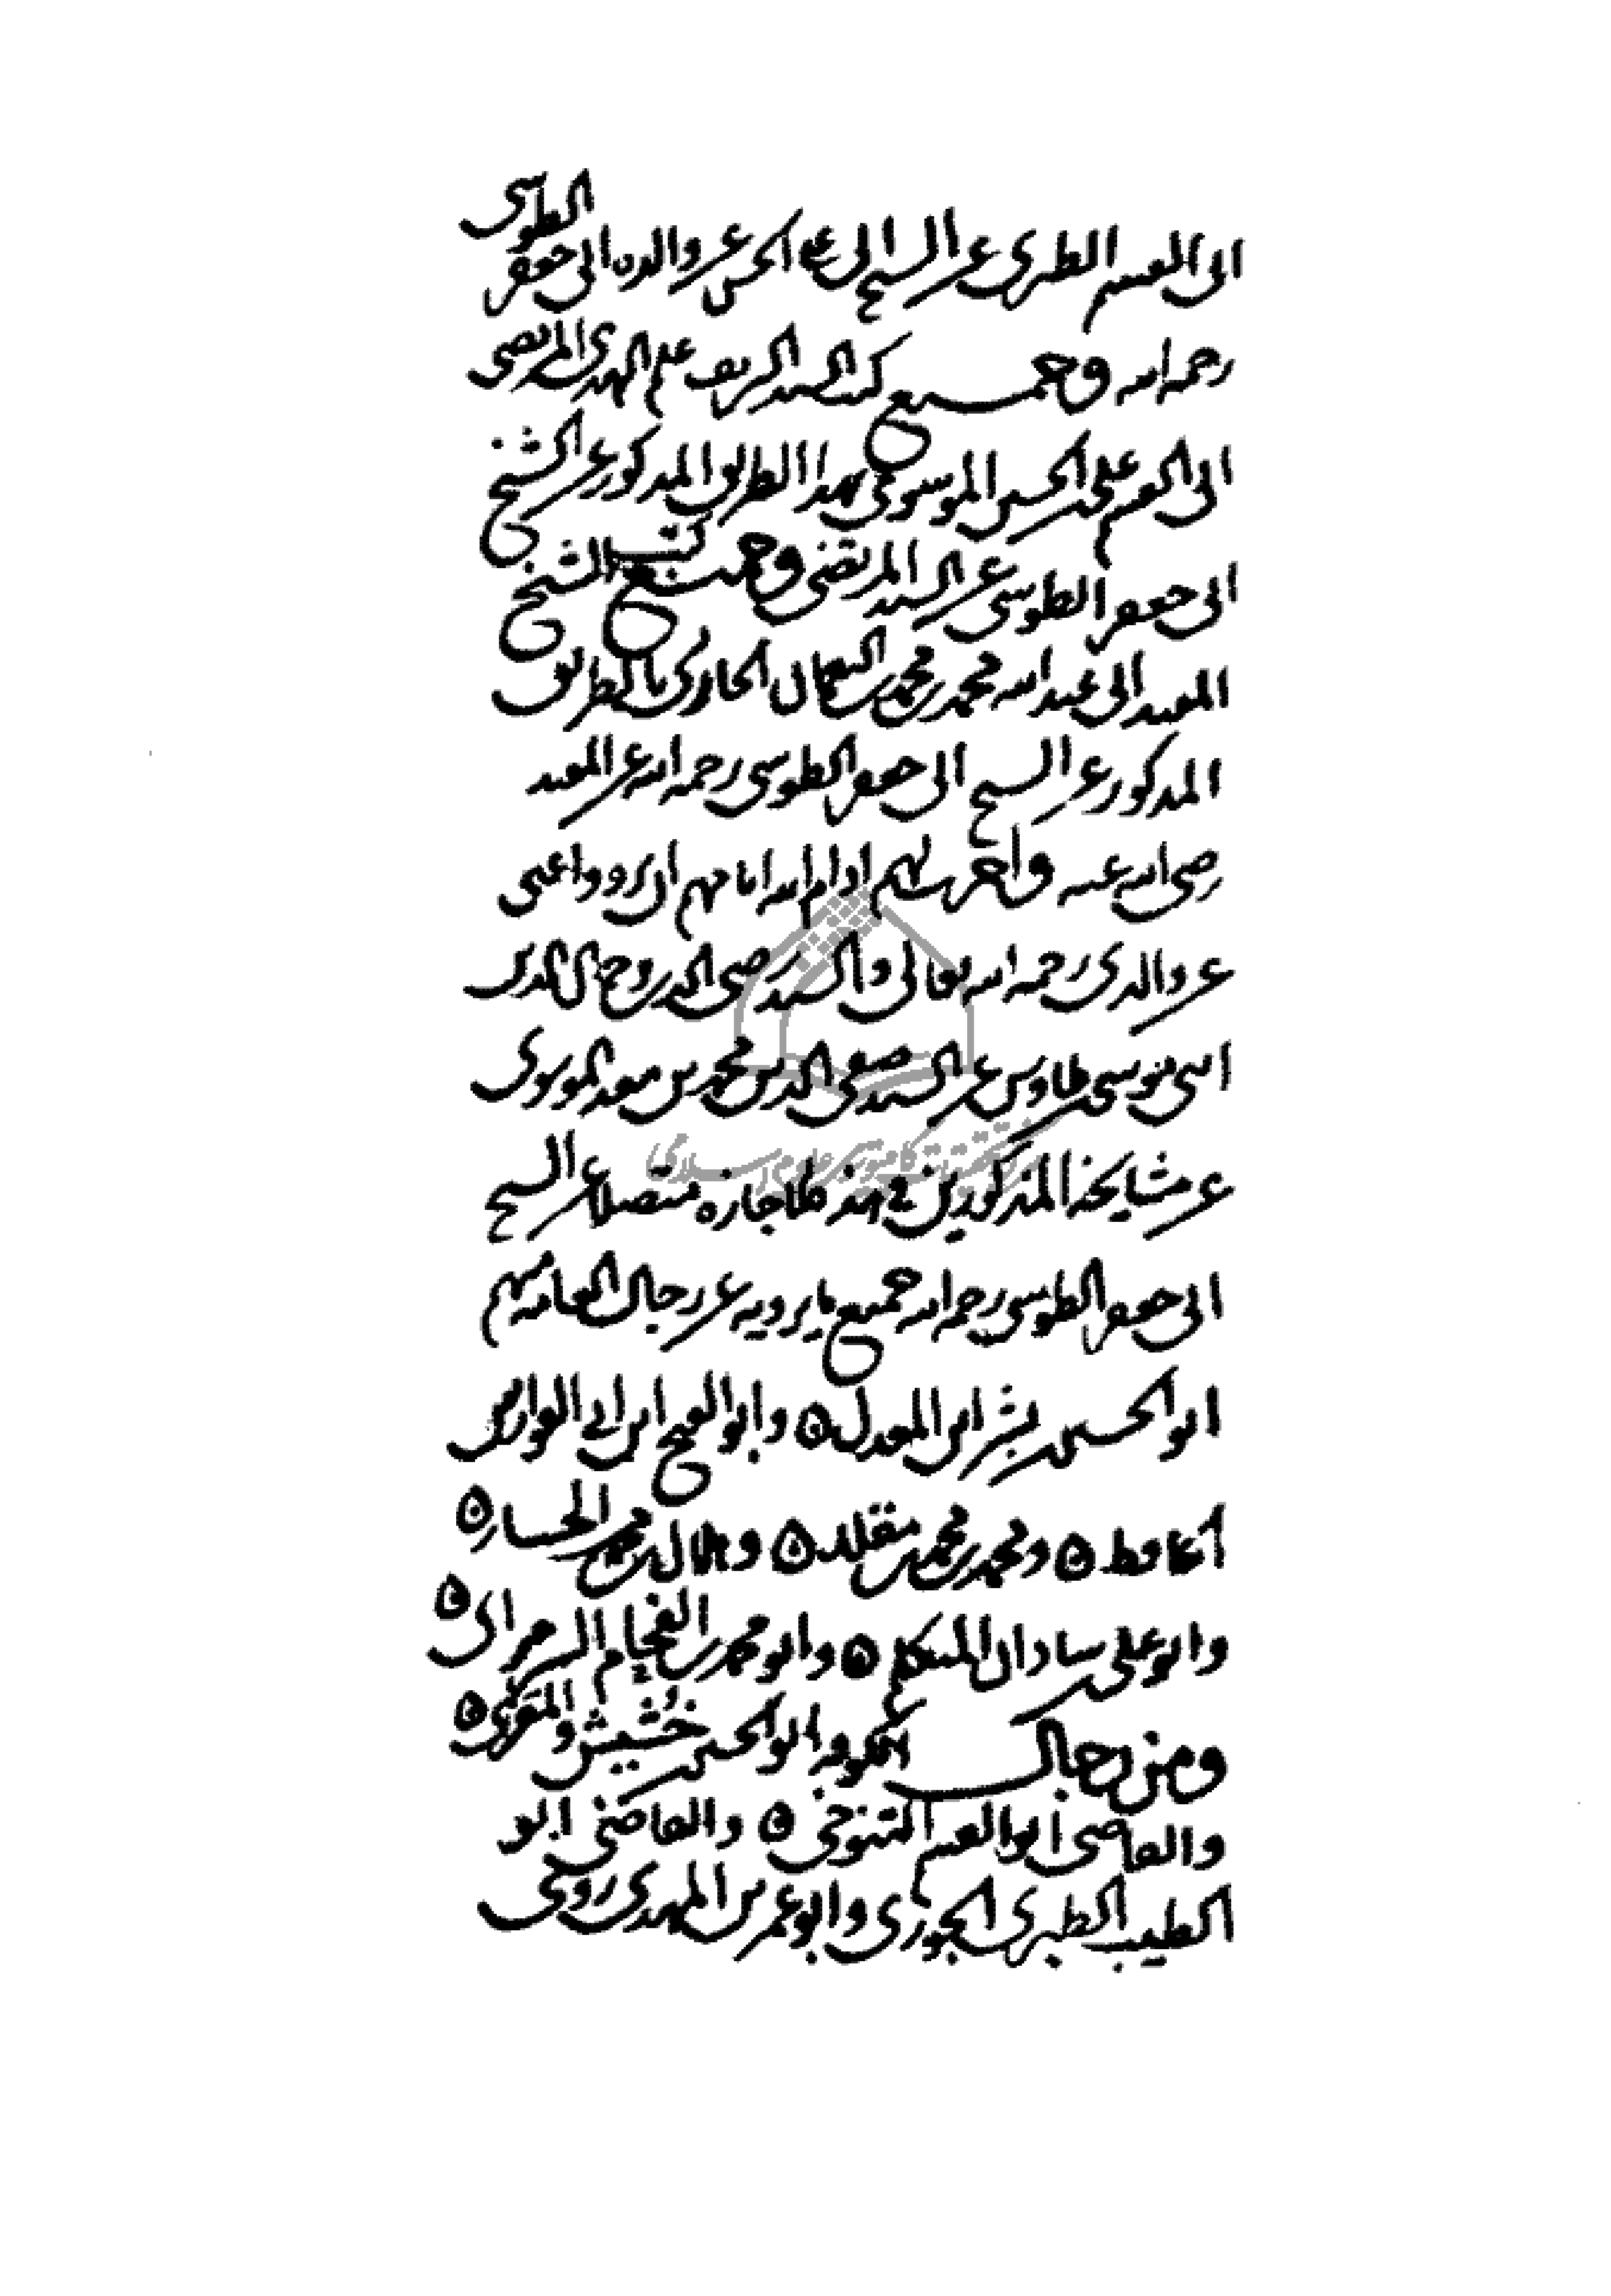 ابى القسم الطبرى عن الشيخ ابى على الحسن عن والده ابى جعفر الطوسى
رحمه الله وجميع كتب السيد الشريف علم الهدى المرتضى
ابى القسم على بن الحسين الموسوى بهذا الطريق المذكور عن الشيخ
ابى جعفر الطوسى عن السيد المرتضى وجميع كتب الشيخ
المفيد ابى عبد الله محمد بن محمد بن النعمان الحارثى بالطريق
المذكور عن الشيخ ابى جعفر الطوسى رحمه الله عن المفيد
رضى الله عنه واجزت لهم ادام الله ايامهم ان يرووا عنى
عن والدى رحمه الله تعالى والسيد رضى الدين وجمال الدين
ابنى موسى بن طاوس عن السيد صفى الدين محمد بن معد الموسوى
عن مشايخه المذكورين فى هذه الاجازه متصلا عن الشيخ
ابى جعفر الطوسى رحمه الله جميع ما يرويه عن رجال العامه منهم
ابو الحسين بن بشران المعدل ۞ وابو الفتح ابن ابى الفوارس
الحافظ ۞ ومحمد بن محمد بن مخلد ۞ وهلال بن محمد الحفار ۞
وابو على بن شاذان المتكلم ۞ وابو محمد بن الفحام السرمرائى ۞
ومن رجال الكوفه ابو الحسن بن خشيش المقرى ۞
والقاضى ابو القسم التنوخى ۞ والقاضى ابو
الطيب الطبرى الجوزى وابو عمر بن المهدى روى
مركز تحقيقات كامپيوترى علوم اسلامى